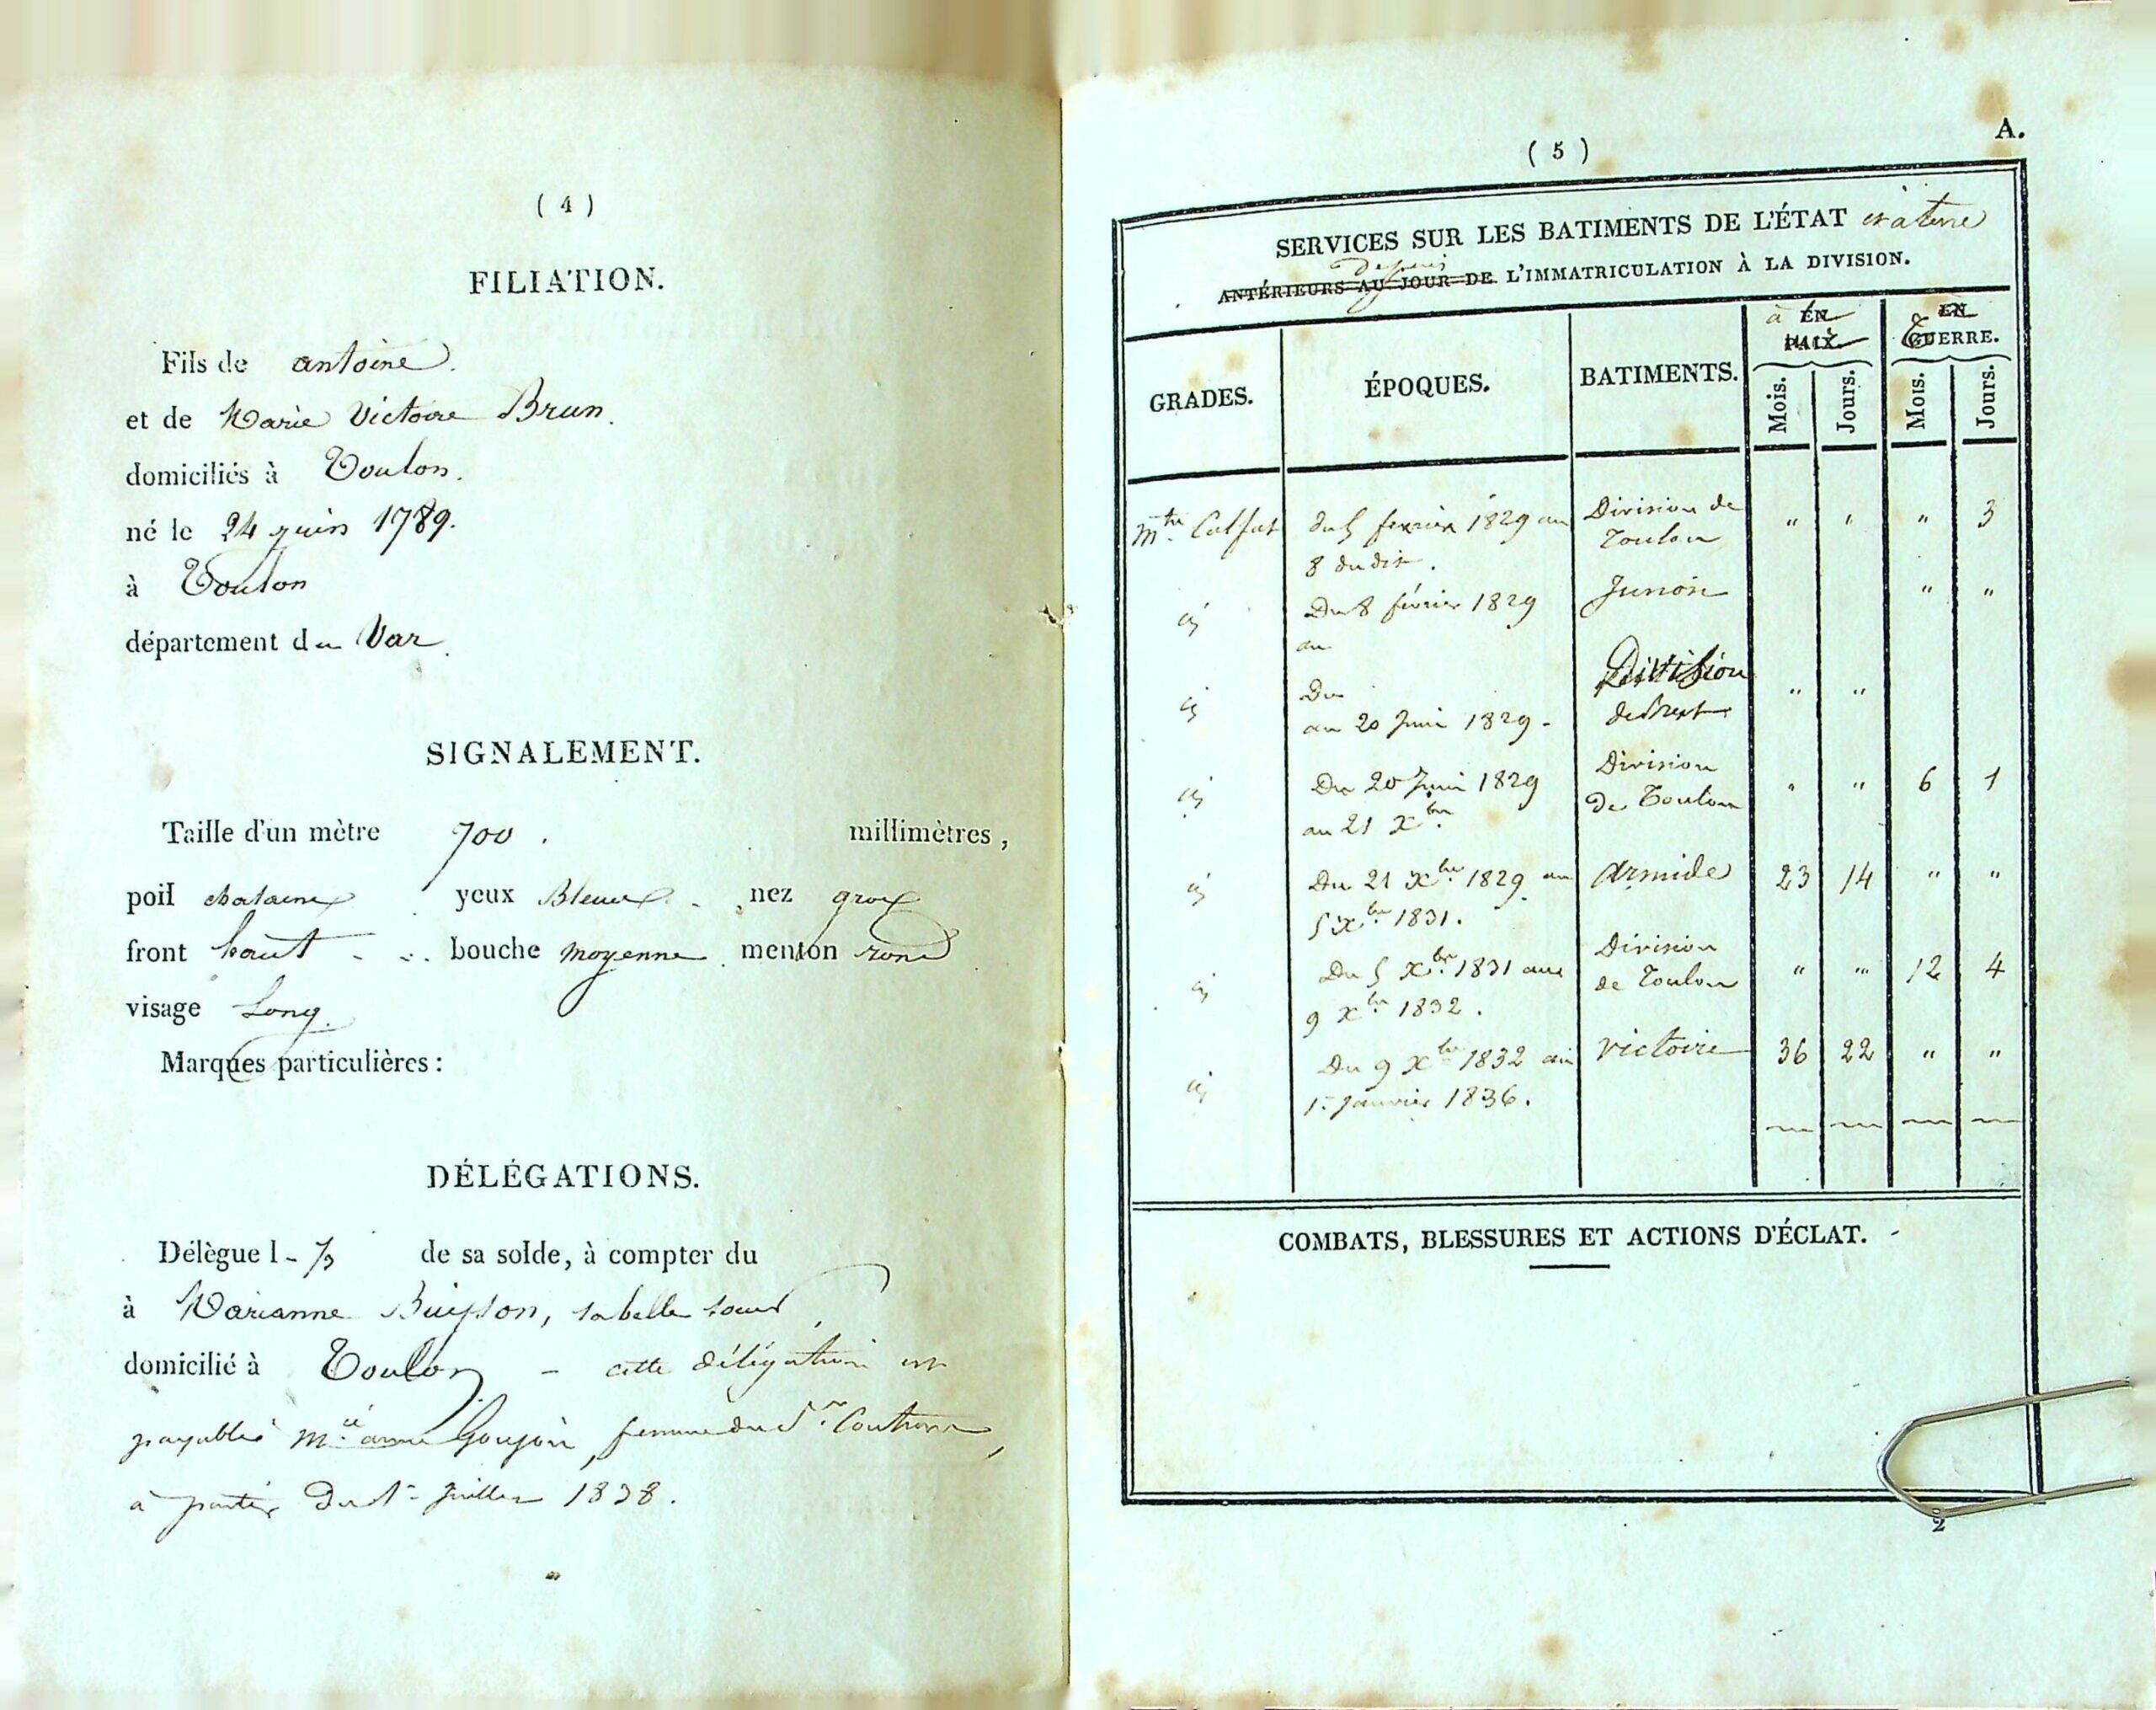 ( 4 )
FILIATION.
Fils de antoine.
et de Marie Victoire Brun.
domiciliés à Toulon.
né le 24 juin 1789.
à Toulon
département du Var.
SIGNALEMENT.
Taille d'un mètre 700. millimètres,
poil chatains yeux Bleux. nez gros
front haut bouche moyenne menton rond
visage Long.
Marques particulières :
DÉLÉGATIONS.
Délègue l- 1/3 de sa solde, à compter du
à Marianne, sa belle soeur
domicilié à Toulon - cette délégation est
payable à femme du Sr
à partir du 1er Juillet 1838.
A.
( 5 )
SERVICES SUR LES BATIMENTS DE L'ÉTAT et à terre
depuis
ANTÉRIEURS AU JOUR DE L'IMMATRICULATION À LA DIVISION.
GRADES. ÉPOQUES. BATIMENTS. à EN PAIX. EN GUERRE.
Mois. Jours. Mois. Jours.
Mtre Calfat du 5 fevrier 1829 au Division de " " " 3
8 dudit. Toulon
id Du 8 février 1829 Junon " "
au
id Du Division " "
au 20 Juin 1829. de Brest
id Du 20 Juin 1829 Division " " 6 1
au 21 Xbre de Toulon
id Du 21 Xbre 1829 au Armide 23 14 " "
5 Xbre 1831.
id Du 5 Xbre 1831 au Division " " 12 4
9 Xbre 1832. de Toulon
id Du 9 Xbre 1832 au Victoire 36 22 " "
1er Janvier 1836.
COMBATS, BLESSURES ET ACTIONS D'ÉCLAT.
2